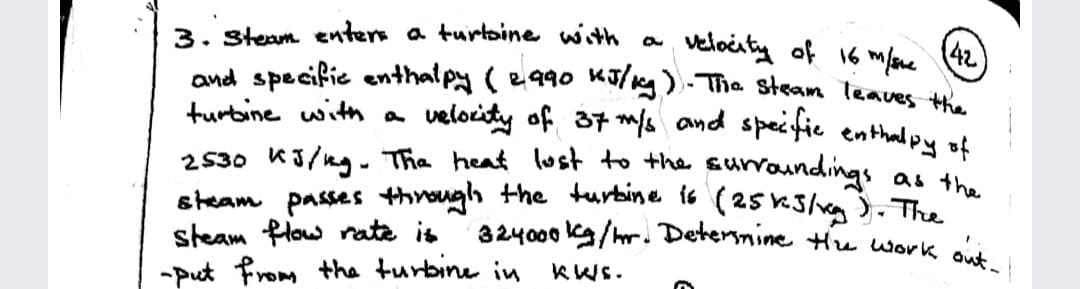 3. Steam enters a turbine with a velocity of 16 m/sec (42)
and specific enthalpy (2990 KJ/kg). The steam leaves the
turbine with a velocity of 37 m/s and specific enthalpy of
2530 KJ/kg. The heat lost to the surroundings as the
steam passes through the turbine is (25 KJ/kg). The
steam flow rate is 324000 kg/hr. Determine the work out-
-put from the turbine in KWS.